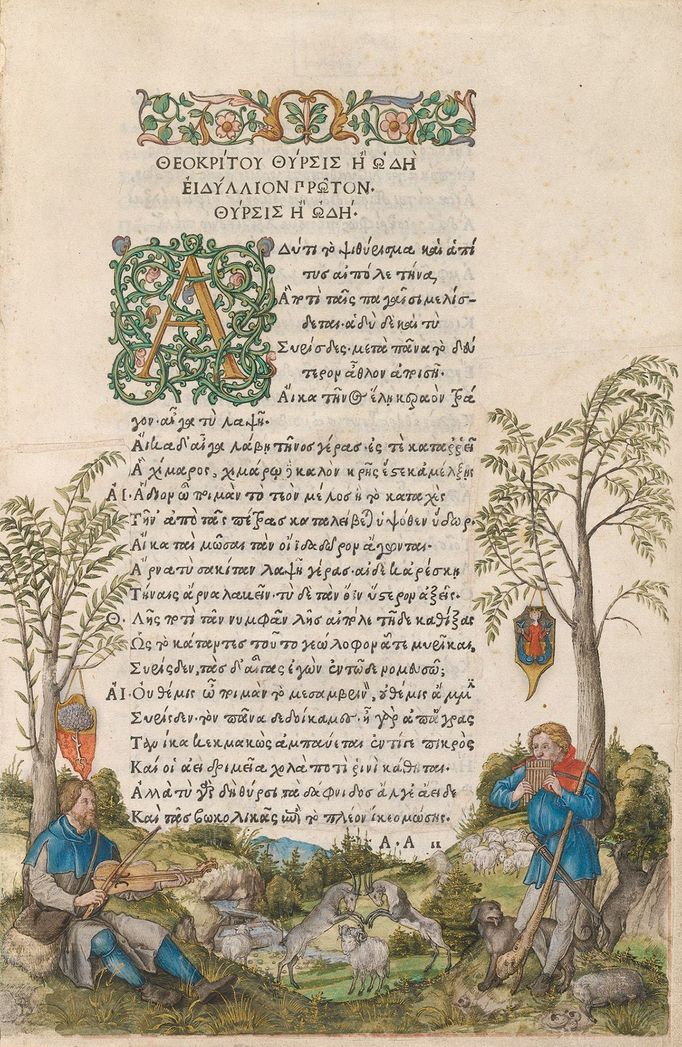 ΘΕΟΚΡΙΤΟΥ ΘΥΡΣΙΣ Ἢ ὨΔῊ
ἘΙΔΥΛΛΙΟΝ ΠΡΩ͂ΤΟΝ.
ΘΥΡΣΙΣ Ἢ ὨΔΉ.
ΑΔύ τι τὸ ψιθύρισμα καὶ ἁ πί
τυς αἰπόλε τήνα,
Ἃ ποτὶ ταῖς παγαῖσι μελίσ-
δεται· ἁδὺ δὲ καὶ τὺ
Συρίσδες· μετὰ πᾶνα τὸ δεύ
τερον ἆθλον ἀποισῇ.
Αἴκα τῆνος ἕλῃ κεραὸν τρά
γον· αἶγα τὺ λαψῇ.
Αἴκα δ' αἶγα λάβῃ τῆνος γέρας· ἐς τὲ καταρρεῖ
Ἁ χίμαρος, χιμάρῳ δὲ καλὸν κρῆς ἔςτε κ' ἀμέλξῃς
ΑΙ. Ἅδιον ὦ ποιμὰν τὸ τεὸν μέλος ἢ τὸ καταχὲς
Τῆν' ἀπὸ τᾶς πέτρας καταλείβεται ὑψόθεν ὕδωρ.
Αἴκα ταὶ μῶσαι τὰν οἴϊδα δῶρον ἄγωνται.
Ἄρνα τὺ σακίταν λαψῇ γέρας. αἰ δέ κ' ἀρέσκῃ
Τήναις ἄρνα λαβεῖν· τὺ δὲ τὰν ὄϊν ὕστερον ἀξεῖς.
Θ. Λῇς ποτὶ τᾶν νυμφᾶν λῇς αἰπόλε τῇδε καθίξας
Ὡς τὸ κάταντες τοῦτο γεώλοφον ἅτε μυρίκαι,
Συρίσδεν, τὰς δ' αἶγας ἐγὼν ἐν τῷδε νομευσῶ;
ΑΙ. Οὐ θέμις ὦ ποιμὰν τὸ μεσαμβρινὸν, οὐ θέμις ἄμμιν
Συρίσδεν· τὸν πᾶνα δεδοίκαμες· ἦ γὰρ ἀπ' ἄγρας
Τανίκα κεκμακὼς ἀμπαύεται ἐντί γε πικρὸς
Καί οἱ ἀεὶ δριμεῖα χολὰ ποτὶ ῥινὶ κάθηται.
Ἀλλὰ τὺ γὰρ δὴ θύρσι τὰ δάφνιδος ἄλγε' ἀείδες
Καὶ τᾶς βωκολικᾶς ἐπὶ τὸ πλέον ἵκεο μώσης.
Α.Α ii